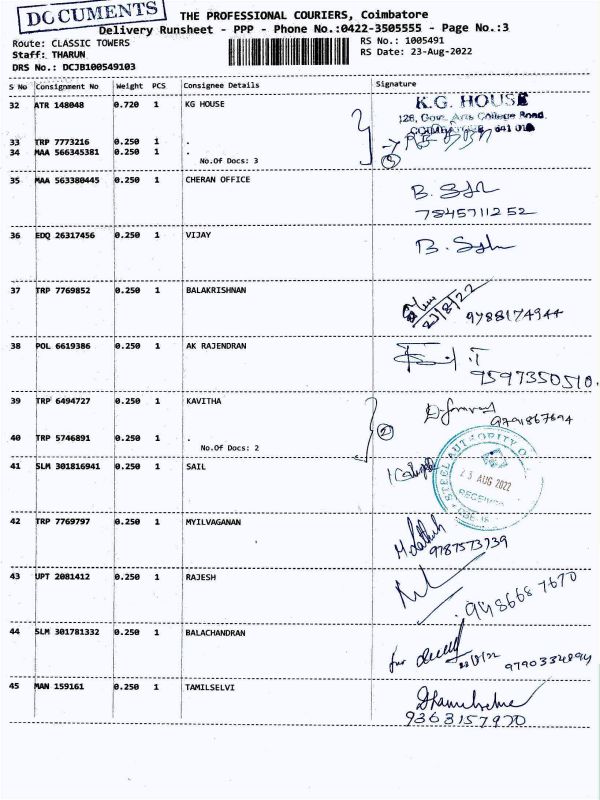 DOCUMENTS
THE PROFESSIONAL COURIERS, Coimbatore
Delivery Runsheet - PPP - Phone No.:0422-3505555 - Page No.:3
Route: CLASSIC TOWERS
RS No.: 1005491
Staff: THARUN
RS Date: 23-Aug-2022
DRS No.: DCJB100549103
S No Consignment No Weight PCS Consignee Details Signature
32 ATR 148048 0.720 1 KG HOUSE
K.G. HOUSE
126, Govt. Arts College Road,
COIMBATORE 641 018
33 TRP 7773216 0.250 1 .
34 MAA 566345381 0.250 1 .
No.Of Docs: 3
3
35 MAA 563380445 0.250 1 CHERAN OFFICE
7845711252
36 EDQ 26317456 0.250 1 VIJAY
37 TRP 7769852 0.250 1 BALAKRISHNAN
23/8/22
9788174944
38 POL 6619386 0.250 1 AK RAJENDRAN
9597350510.
39 TRP 6494727 0.250 1 KAVITHA
9791867694
40 TRP 5746891 0.250 1 .
No.Of Docs: 2
2
41 SLM 301816941 0.250 1 SAIL
STEEL AUTHORITY OF
23 AUG 2022
RECEIVED
42 TRP 7769797 0.250 1 MYILVAGANAN
9787573739
43 UPT 2081412 0.250 1 RAJESH
9486687670
44 SLM 301781332 0.250 1 BALACHANDRAN
for
9790334894
45 MAN 159161 0.250 1 TAMILSELVI
9363157970